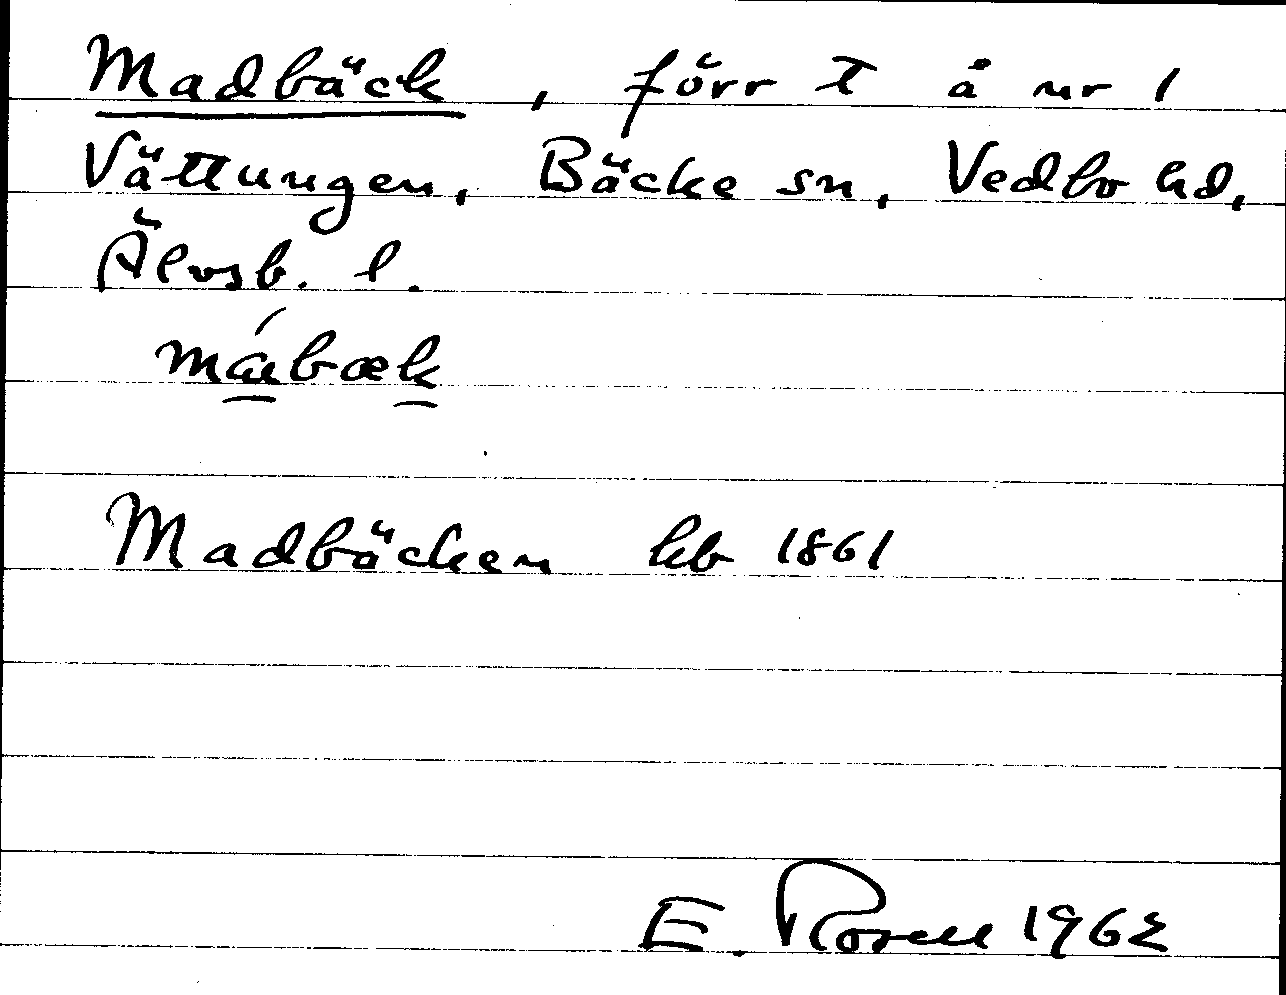 Madbäck, förr t å nr 1
Vättungen, Bäcke sn, Vedbo hd,
Älvsb. l.
Madbäcken hb 1861
E. Rosell 1962